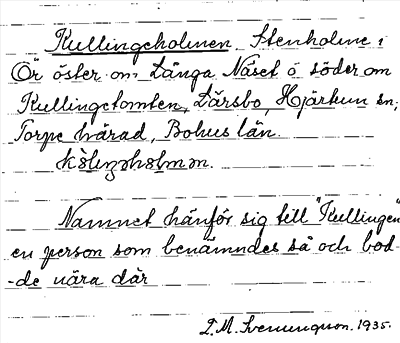 Kullingeholmen. Stenholme i
Ör öster om Långa Näset o söder om
Kullingetomten, Lärsbo, Hjärtum sn,
Torpe härad, Bohus län.
Namnet hänför sig till "Kullingen"
en person som benämndes så och bod-
-de nära där
1935.